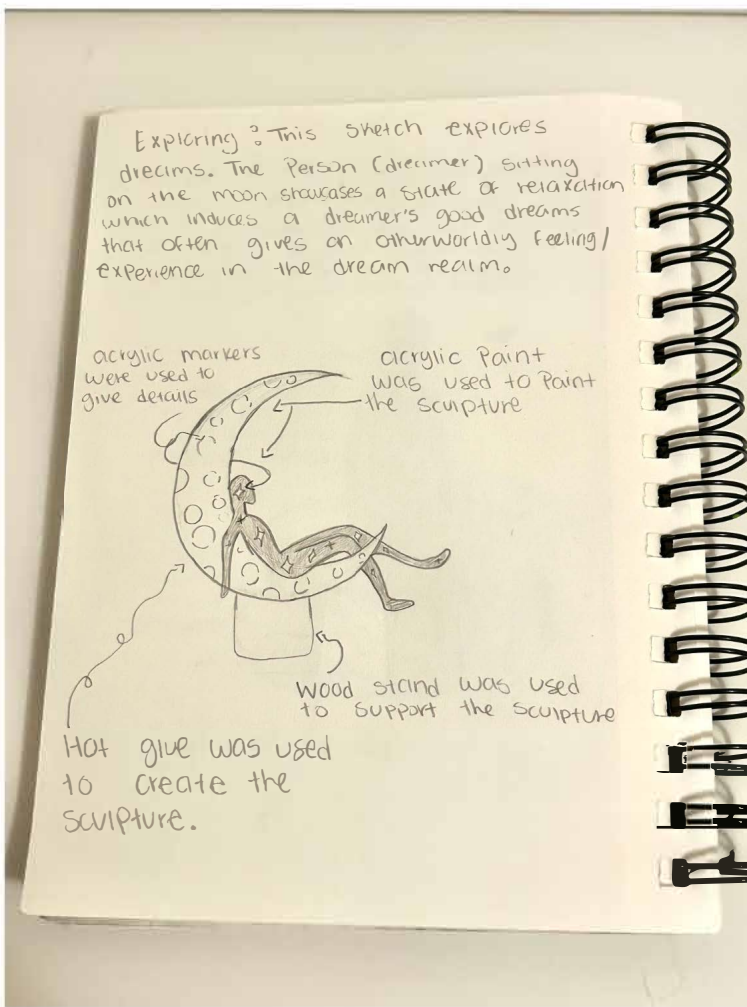 Exploring : This sketch explores
dreams. The Person (dreamer) sitting
on the moon showcases a state of relaxation
which induces a dreamer's good dreams
that often gives an otherworldly feeling/
experience in the dream realm.
acrylic markers
were used to
give details
acrylic Paint
was used to Paint
the sculpture
wood stand was used
to support the sculpture
Hot glue was used
to create the
sculpture.